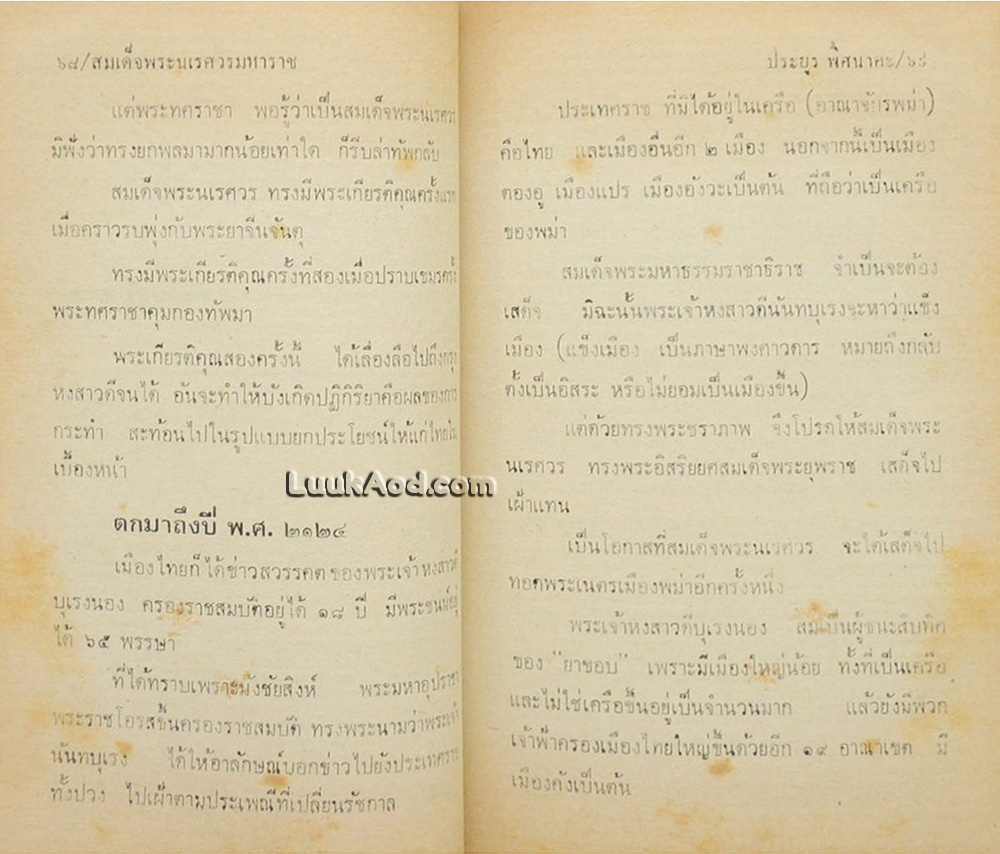 ๖๘/สมเด็จพระนเรศวรมหาราช
แต่พระทศราชา พอรู้ว่าเป็นสมเด็จพระนเรศวร
มิพึ่งว่าทรงยกพลมามากน้อยเท่าใด ก็รีบล่าทัพกลับ
สมเด็จพระนเรศวร ทรงมีพระเกียรติคุณครั้งแรก
เมื่อคราวรบพุ่งกับพระยาจีนจันตุ
ทรงมีพระเกียรติคุณครั้งที่สองเมื่อปราบเขมรครั้ง
พระทศราชาคุมกองทัพมา
พระเกียรติคุณสองครั้งนี้ ได้เลื่องลือไปถึงกรุง
หงสาวดีจนได้ อันจะทำให้บังเกิดปฏิกิริยาคือผลของการ
กระทำ สะท้อนไปในรูปแบบยกประโยชน์ให้แก่ไทยใน
เบื้องหน้า
ตกมาถึงปี พ.ศ. ๒๑๒๔
เมืองไทยก็ได้ข่าวสวรรคตของพระเจ้าหงสาวดี
บุเรงนอง ครองราชสมบัติอยู่ได้ ๑๘ ปี มีพระชนม์อยู่
ได้ ๖๕ พรรษา
ที่ได้ทราบเพราะมังชัยสิงห์ พระมหาอุปราชา
พระราชโอรสขึ้นครองราชสมบัติ ทรงพระนามว่าพระเจ้า
นันทบุเรง ได้ให้อาลักษณ์บอกข่าวไปยังประเทศราช
ทั้งปวง ไปเฝ้าตามประเพณีที่เปลี่ยนรัชกาล
ประยุร พิศนาคะ/๖๙
ประเทศราช ที่มิได้อยู่ในเครือ (อาณาจักรพม่า)
คือไทย และเมืองอื่นอีก ๒ เมือง นอกจากนี้เป็นเมือง
ตองอู เมืองแปร เมืองอังวะเป็นต้น ที่ถือว่าเป็นเครือ
ของพม่า
สมเด็จพระมหาธรรมราชาธิราช จำเป็นจะต้อง
เสด็จ มิฉะนั้นพระเจ้าหงสาวดีนันทบุเรงจะหาว่าแข็ง
เมือง (แข็งเมือง เป็นภาษาพงศาวดาร หมายถึงกลับ
ตั้งเป็นอิสระ หรือไม่ยอมเป็นเมืองขึ้น)
แต่ด้วยทรงพระชราภาพ จึงโปรดให้สมเด็จพระ
นเรศวร ทรงพระอิสริยยศสมเด็จพระยุพราช เสด็จไป
เฝ้าแทน
เป็นโอกาสที่สมเด็จพระนเรศวร จะได้เสด็จไป
ทอดพระเนตรเมืองพม่าอีกครั้งหนึ่ง
พระเจ้าหงสาวดีบุเรงนอง สมเป็นผู้ชนะสิบทิศ
ของ "ยาขอบ" เพราะมีเมืองใหญ่น้อย ทั้งที่เป็นเครือ
และไม่ใช่เครือขึ้นอยู่เป็นจำนวนมาก แล้วยังมีพวก
เจ้าฟ้าครองเมืองไทยใหญ่ขึ้นด้วยอีก ๑๙ อาณาเขต มี
เมืองคังเป็นต้น
LuukAod.com